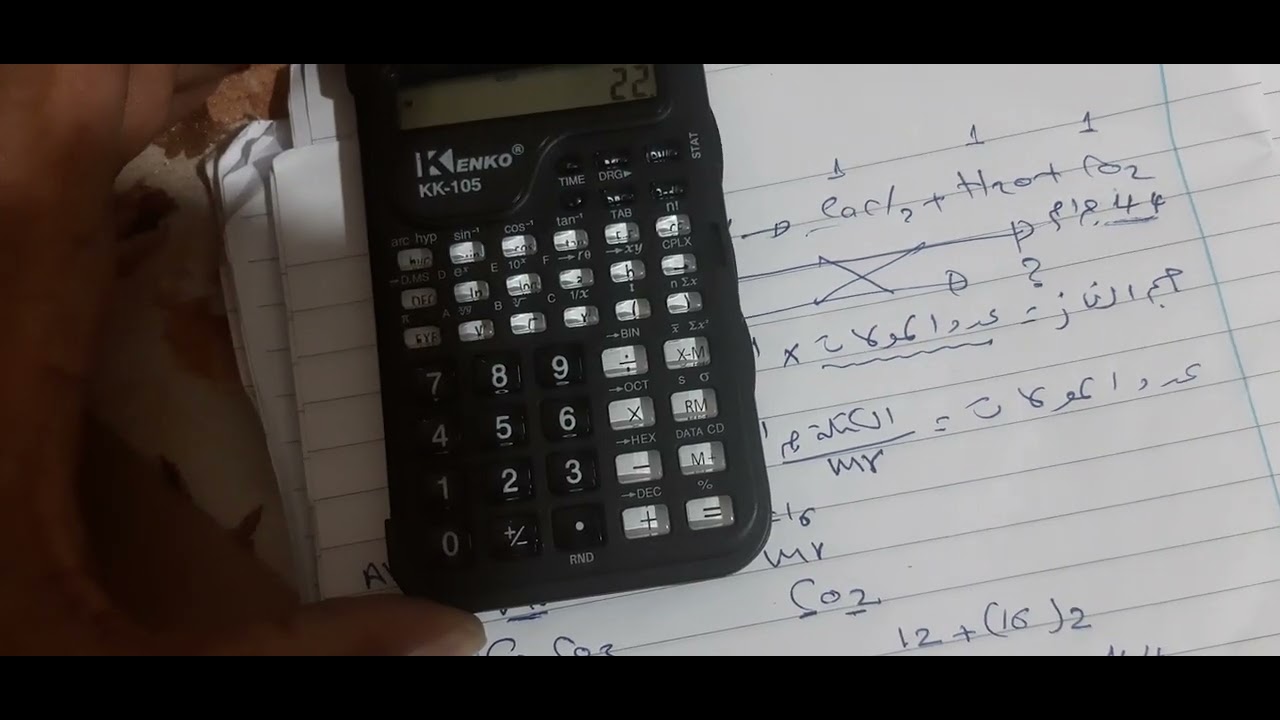 22.
KENKO®
KK-105
TIME DRG▶ STAT
arc hyp sin⁻¹ cos⁻¹ tan⁻¹ TAB n!
→D.MS D eˣ E 10ˣ F →rθ →xy CPLX
A B C 1/x n Σx
→BIN x̄ Σx²
7 8 9 ÷ X-M
→OCT s σ
4 5 6 X RM
→HEX DATA CD
1 2 3 − M+
→DEC %
0 +/− • + =
RND
1 1 1
CaCl2 + H2O + CO2
44 جرام
?
حجم الغاز = عدد المولات ×
عدد المولات = الكتلة
mr
=16
mr
CO2
12 + (16)2